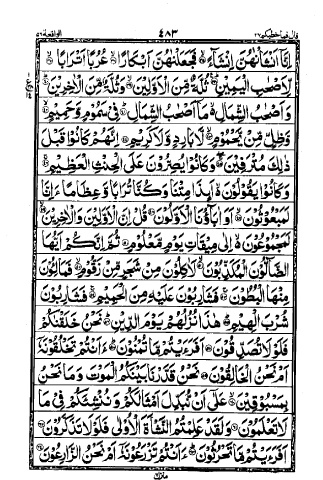 قال فما خطبكم ٢٧ ٤٨٣ الواقعة ٥٦
اِنَّاۤ اَنْشَاْنٰهُنَّ اِنْشَآءً فَجَعَلْنٰهُنَّ اَبْكَارًا عُرُبًا اَتْرَابًا
لِّاَصْحٰبِ الْيَمِيْنِ ثُلَّةٌ مِّنَ الْاَوَّلِيْنَ وَثُلَّةٌ مِّنَ الْاٰخِرِيْنَ
وَاَصْحٰبُ الشِّمَالِ مَاۤ اَصْحٰبُ الشِّمَالِ فِيْ سَمُوْمٍ وَّحَمِيْمٍ
وَّظِلٍّ مِّنْ يَّحْمُوْمٍ لَّا بَارِدٍ وَّلَا كَرِيْمٍ اِنَّهُمْ كَانُوْا قَبْلَ
ذٰلِكَ مُتْرَفِيْنَ وَكَانُوْا يُصِرُّوْنَ عَلَى الْحِنْثِ الْعَظِيْمِ
وَكَانُوْا يَقُوْلُوْنَ اَئِذَا مِتْنَا وَكُنَّا تُرَابًا وَّعِظَامًا ءَاِنَّا
لَمَبْعُوْثُوْنَ اَوَاٰبَآؤُنَا الْاَوَّلُوْنَ قُلْ اِنَّ الْاَوَّلِيْنَ وَالْاٰخِرِيْنَ
لَمَجْمُوْعُوْنَ اِلٰى مِيْقَاتِ يَوْمٍ مَّعْلُوْمٍ ثُمَّ اِنَّكُمْ اَيُّهَا
الضَّآلُّوْنَ الْمُكَذِّبُوْنَ لَاٰكِلُوْنَ مِنْ شَجَرٍ مِّنْ زَقُّوْمٍ فَمَالِـُٔوْنَ
مِنْهَا الْبُطُوْنَ فَشٰرِبُوْنَ عَلَيْهِ مِنَ الْحَمِيْمِ فَشٰرِبُوْنَ
شُرْبَ الْهِيْمِ هٰذَا نُزُلُهُمْ يَوْمَ الدِّيْنِ نَحْنُ خَلَقْنٰكُمْ
فَلَوْلَا تُصَدِّقُوْنَ اَفَرَءَيْتُمْ مَّا تُمْنُوْنَ ءَاَنْتُمْ تَخْلُقُوْنَهٗۤ
اَمْ نَحْنُ الْخٰلِقُوْنَ نَحْنُ قَدَّرْنَا بَيْنَكُمُ الْمَوْتَ وَمَا نَحْنُ
بِمَسْبُوْقِيْنَ عَلٰۤى اَنْ نُّبَدِّلَ اَمْثَالَكُمْ وَنُنْشِئَكُمْ فِيْ مَا
لَا تَعْلَمُوْنَ وَلَقَدْ عَلِمْتُمُ النَّشْاَةَ الْاُوْلٰى فَلَوْلَا تَذَكَّرُوْنَ
اَفَرَءَيْتُمْ مَّا تَحْرُثُوْنَ ءَاَنْتُمْ تَزْرَعُوْنَهٗۤ اَمْ نَحْنُ الزّٰرِعُوْنَ